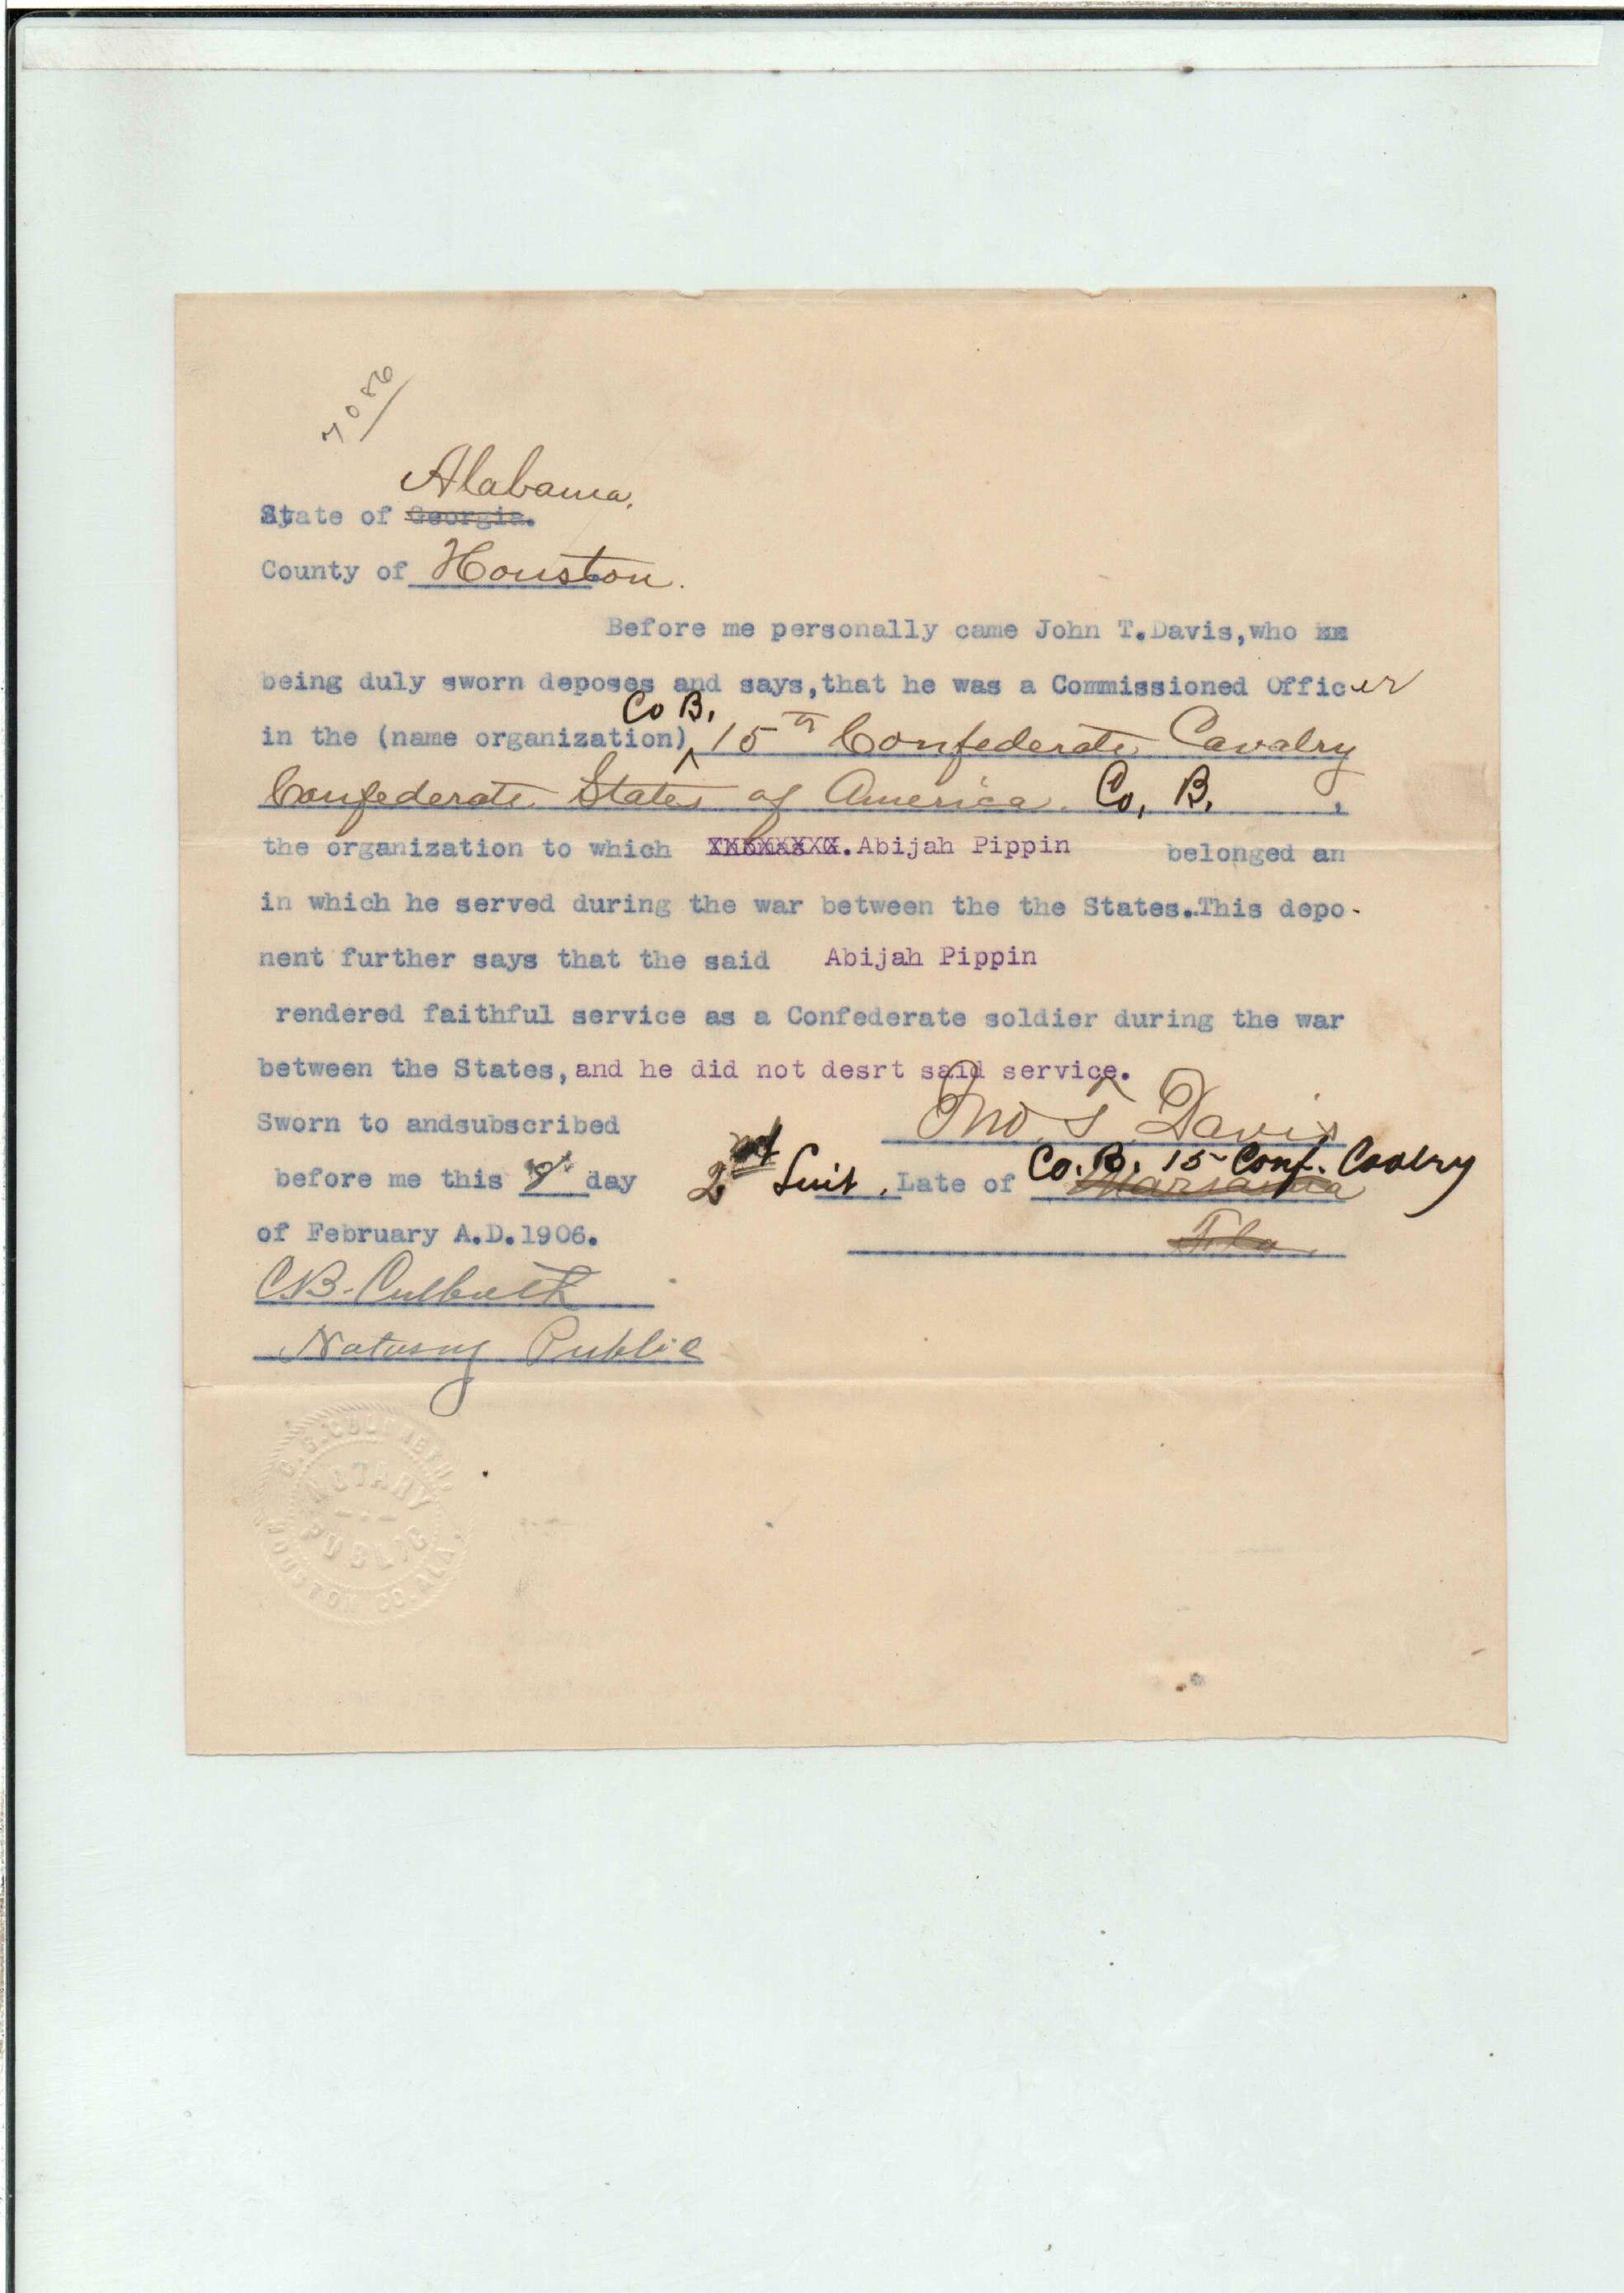 7086
Alabama.
State of Georgia.
County of Houston.
Before me personally came John T.Davis,who
being duly sworn deposes and says,that he was a Commissioned Officer
Co B.
in the (name organization) 15th Confederate Cavalry
Confederate States of America. Co, B. ,
the organization to which Abijah Pippin belonged an
in which he served during the war between the the States.This depo-
nent further says that the said Abijah Pippin
rendered faithful service as a Confederate soldier during the war
between the States,and he did not desrt said service.
Sworn to andsubscribed Jno T Davis
before me this day 2nd Luit, Late of Co. B. 15 Conf. Cavlry
of February A.D.1906. Fla.
C.B. Culbreth
Notary Public
C.B.CULBRETH.
NOTARY
PUBLIC
HOUSTON CO. ALA.